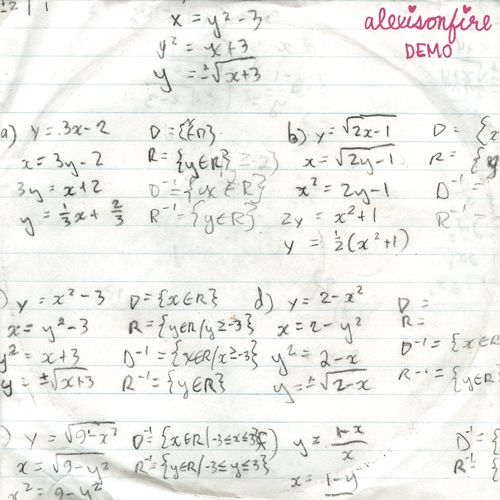 ±2 | 1
x = y² - 3
y² = x + 3
y = ±√x+3
alexisonfire
DEMO
a) y = 3x - 2
x = 3y - 2
3y = x + 2
y = 1/3 x + 2/3
R = {y∈R
D⁻¹ = {x∈R}
R⁻¹ = {y∈R}
b) y = √2x-1
x = √2y-1
x² = 2y - 1
2y = x² + 1
y = 1/2 (x² + 1)
D = {x
R = {y
D⁻¹ =
R⁻¹ =
) y = x² - 3
x = y² - 3
y² = x + 3
y = ±√x+3
D = {x∈R}
R = {y∈R/y≥-3}
D⁻¹ = {x∈R/x≥-3}
R⁻¹ = {y∈R}
d) y = 2 - x²
x = 2 - y²
y² = 2 - x
y = ±√2-x
D =
R =
D⁻¹ = {x∈R
R⁻¹ = {y∈R
) y = √9-x²
x = √9-y²
x² = 9 - y²
D⁻¹ = {x∈R/-3≤x≤3}
R⁻¹ = {y∈R/-3≤y≤3}
y = 1-x/x
x = 1-y
D⁻¹ = {
R = {